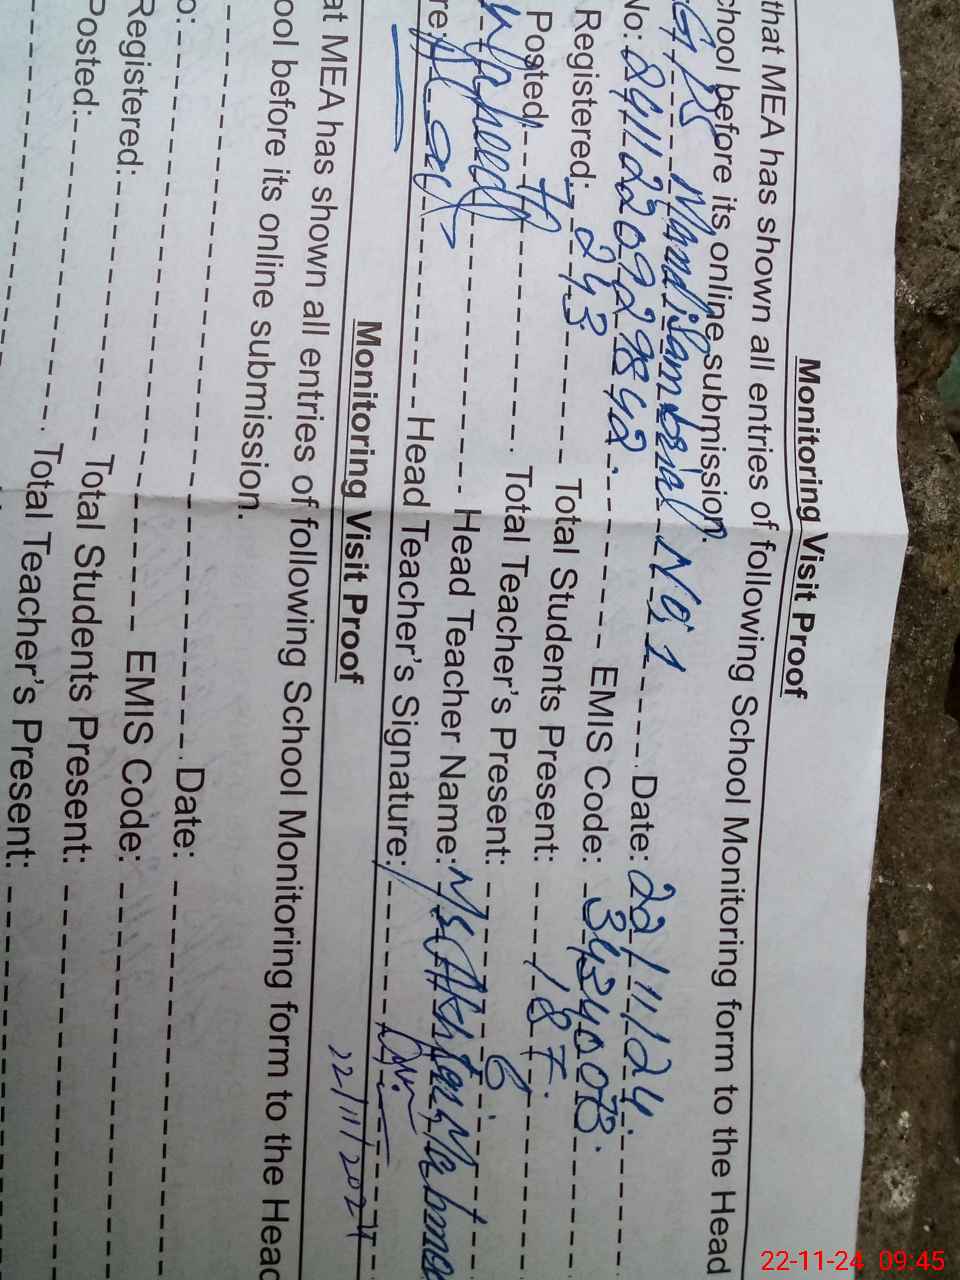 Monitoring Visit Proof
that MEA has shown all entries of following School Monitoring form to the Head
chool before its online submission.
GPS No 1 Date: 22/11/24
No: EMIS Code:
Registered: 243 Total Students Present: 187
Posted: Total Teacher's Present: 6
Waheed Head Teacher Name: Akhtar Mehmood
re: Head Teacher's Signature:
22/11/2024
Monitoring Visit Proof
at MEA has shown all entries of following School Monitoring form to the Head
ool before its online submission.
Date:
o: EMIS Code:
Registered: Total Students Present:
Posted: Total Teacher's Present:
22-11-24 09:45